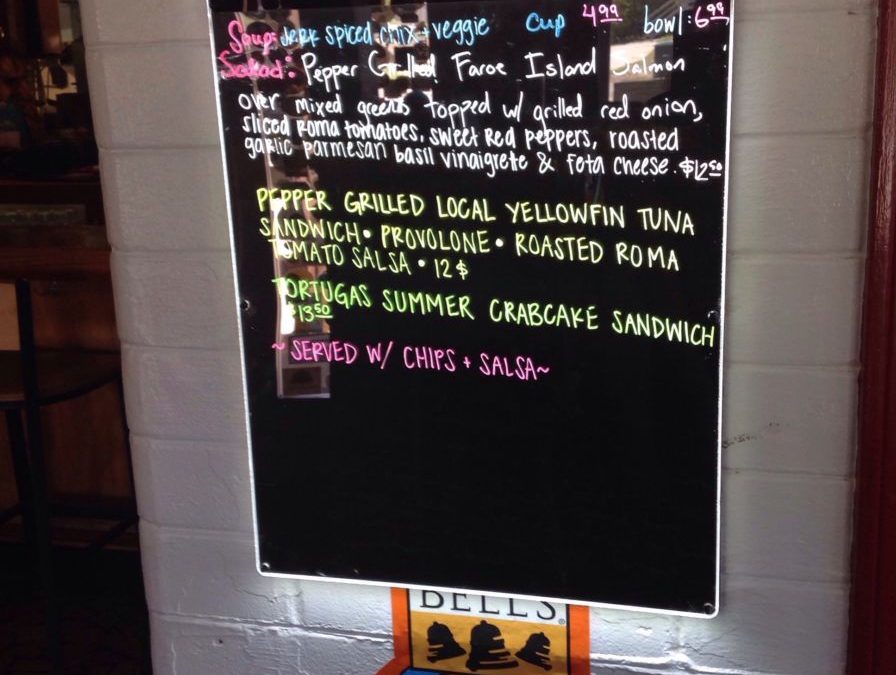 Soup: Jerk spiced chix + veggie cup 4.99 bowl: 6.99
Salad: Pepper Grilled Faroe Island Salmon
over mixed greens topped w/ grilled red onion,
sliced roma tomatoes, sweet red peppers, roasted
garlic parmesan basil vinaigrette & feta cheese. $12.50
PEPPER GRILLED LOCAL YELLOWFIN TUNA
SANDWICH • PROVOLONE • ROASTED ROMA
TOMATO SALSA • 12 $
TORTUGAS SUMMER CRABCAKE SANDWICH
$13.50
~ SERVED W/ CHIPS + SALSA ~
BELL'S®